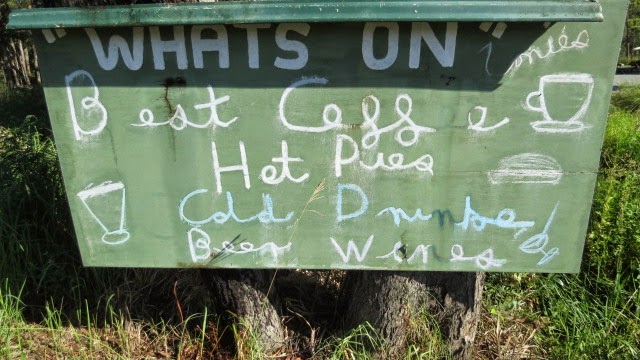 "WHATS ON"
Best Coffee
Hot Pies
Cold Drinks
Beer Wines